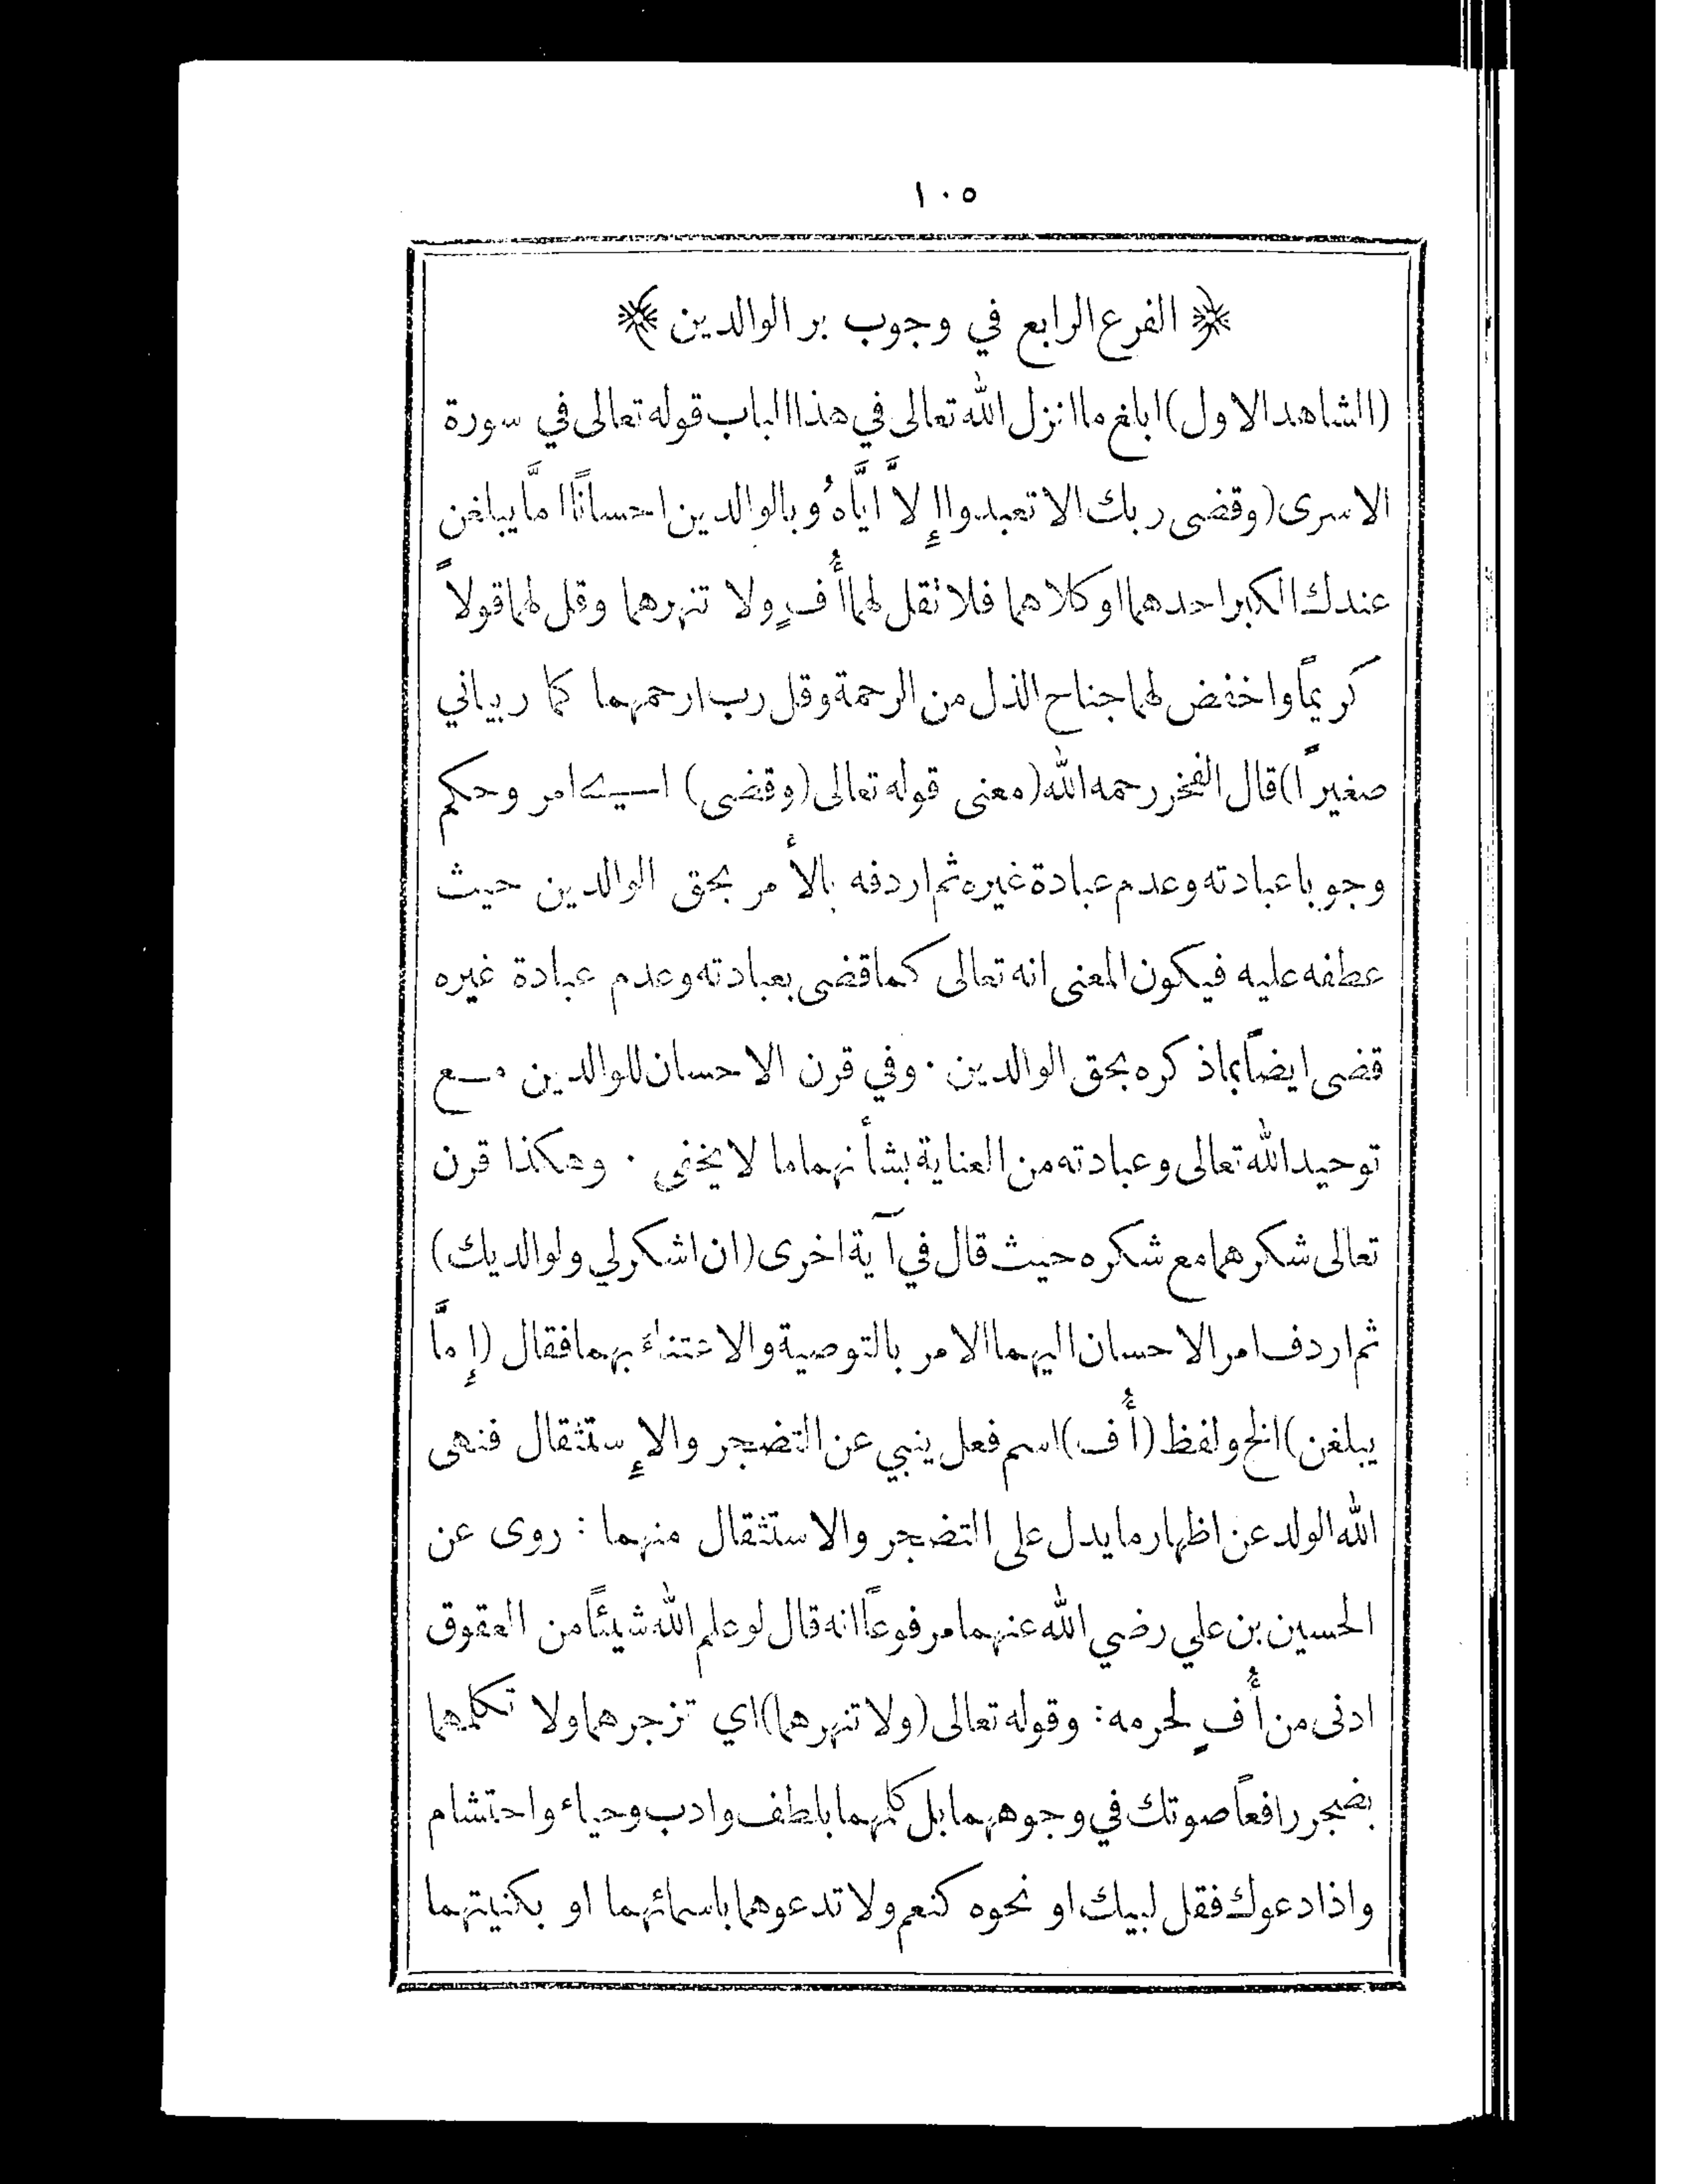 ١٠٥
﴿ الفرع الرابع في وجوب بر الوالدين ﴾
(الشاهد الاول) ابلغ ما انزل الله تعالى في هذا الباب قوله تعالى في سورة
الاسرى (وقضى ربك الا تعبدوا إلاَّ ايَّاهُ وبالوالدين احسانًا امَّا يبلغن
عندك الكبر احدهما او كلاهما فلا تقل لهما أُفٍ ولا تنهرهما وقل لهما قولاً
كريمًا واخفض لهما جناح الذل من الرحمة وقل رب ارحمهما كما ربياني
صغيرًا) قال الفخر رحمه الله (معنى قوله تعالى (وقضى) اي امر وحكم
وجوبا عبادته وعدم عبادة غيره ثم اردفه بالأمر بحق الوالدين حيث
عطفه عليه فيكون المعنى انه تعالى كما قضى بعبادته وعدم عبادة غيره
قضى ايضاً بما ذكره بحق الوالدين . وفي قرن الاحسان للوالدين مع
توحيد الله تعالى وعبادته من العناية بشأنهما ما لا يخفى . وهكذا قرن
تعالى شكرهما مع شكره حيث قال في آية اخرى (ان اشكر لي ولوالديك)
ثم اردف امر الاحسان اليهما الامر بالتوصية والاعتناء بهما فقال (إمَّا
يبلغن) الخ ولفظ (أُف) اسم فعل ينبي عن التضجر والإستثقال فنهى
الله الولد عن اظهار ما يدل على التضجر والاستثقال منهما : روى عن
الحسين بن علي رضي الله عنهما مرفوعاً انه قال لو علم الله شيئًا من العقوق
ادنى من أُفٍ لحرمه : وقوله تعالى (ولا تنهرهما) اي تزجرهما ولا تكلمهما
بضجر رافعاً صوتك في وجوههما بل كلمهما بلطف وادب وحياء واحتشام
واذا دعوك فقل لبيك او نحوه كنعم ولا تدعوهما باسمائهما او بكنيتهما